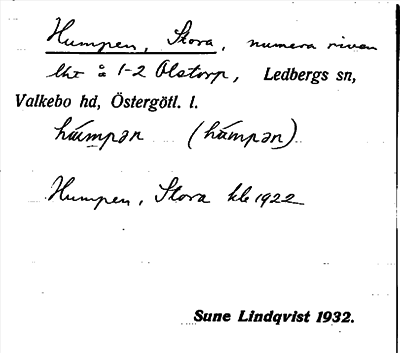 Humpen, Stora, numera riven
lht å 1-2 Olstorp, Ledbergs sn,
Valkebo hd, Östergötl. l.
húmpən (húmpən)
Humpen, Stora kb 1922
Sune Lindqvist 1932.